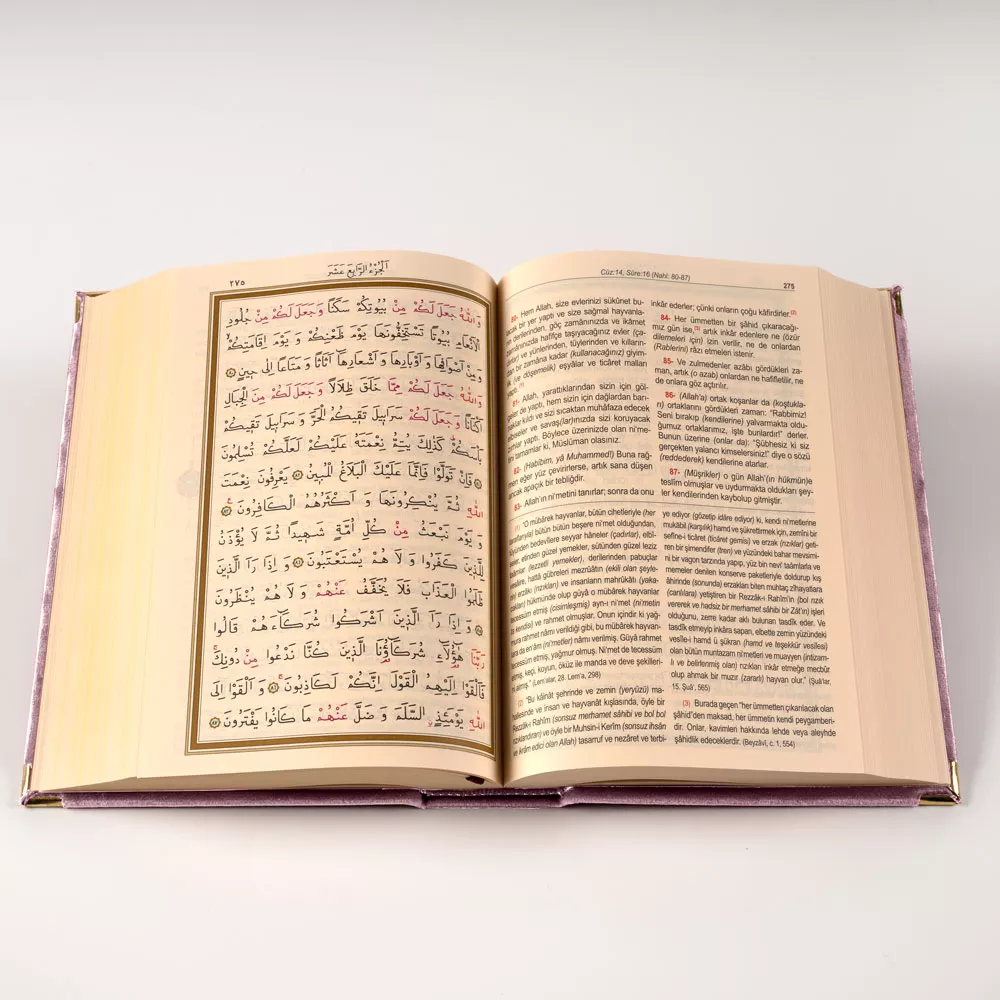 اَلْجُزْءُ الرَّابِعُ عَشَرَ
٢٧٥
وَاللّٰهُ جَعَلَ لَكُمْ مِنْ بُيُوتِكُمْ سَكَنًا وَجَعَلَ لَكُمْ مِنْ جُلُودِ
الْاَنْعَامِ بُيُوتًا تَسْتَخِفُّونَهَا يَوْمَ ظَعْنِكُمْ وَ يَوْمَ اِقَامَتِكُمْۙ
وَمِنْ اَصْوَافِهَا وَ اَوْبَارِهَا وَ اَشْعَارِهَٓا اَثَاثًا وَ مَتَاعًا اِلٰى حٖينٍ ﴿٨٠﴾
وَاللّٰهُ جَعَلَ لَكُمْ مِمَّا خَلَقَ ظِلَالًا وَ جَعَلَ لَكُمْ مِنَ الْجِبَالِ
اَكْنَانًا وَ جَعَلَ لَكُمْ سَرَابٖيلَ تَقٖيكُمُ الْحَرَّ وَ سَرَابٖيلَ تَقٖيكُمْ
بَاْسَكُمْ كَذٰلِكَ يُتِمُّ نِعْمَتَهُ عَلَيْكُمْ لَعَلَّكُمْ تُسْلِمُونَ
﴿٨١﴾ فَاِنْ تَوَلَّوْا فَاِنَّمَا عَلَيْكَ الْبَلَاغُ الْمُبٖينُ ﴿٨٢﴾ يَعْرِفُونَ نِعْمَتَ
اللّٰهِ ثُمَّ يُنْكِرُونَهَا وَ اَكْثَرُهُمُ الْكَافِرُونَ ﴿٨٣﴾
وَ يَوْمَ نَبْعَثُ مِنْ كُلِّ اُمَّةٍ شَهٖيدًا ثُمَّ لَا يُؤْذَنُ
لِلَّذٖينَ كَفَرُوا وَ لَا هُمْ يُسْتَعْتَبُونَ ﴿٨٤﴾ وَ اِذَا رَاَ الَّذٖينَ
ظَلَمُوا الْعَذَابَ فَلَا يُخَفَّفُ عَنْهُمْ وَ لَا هُمْ يُنْظَرُونَ
﴿٨٥﴾ وَ اِذَا رَاَ الَّذٖينَ اَشْرَكُوا شُرَكَٓاءَهُمْ قَالُوا
رَبَّنَا هٰٓؤُ۬لَٓاءِ شُرَكَٓاؤُ۬نَا الَّذٖينَ كُنَّا نَدْعُوا مِنْ دُونِكَۚ
فَاَلْقَوْا اِلَيْهِمُ الْقَوْلَ اِنَّكُمْ لَكَاذِبُونَ ﴿٨٦﴾ وَ اَلْقَوْا اِلَى
اللّٰهِ يَوْمَئِذٍ السَّلَمَ وَ ضَلَّ عَنْهُمْ مَا كَانُوا يَفْتَرُونَ ﴿٨٧﴾
Cüz:14, Sûre:16 (Nahl: 80-87)
275
80- Hem Allah, size evlerinizi sükûnet bu-
lacak bir yer yaptı ve size sağmal hayvanla-
rın derilerinden, göç zamânınızda ve ikâmet
zamânınızda hafifçe taşıyacağınız evler (ça-
dırlar) ve yünlerinden, tüylerinden ve kılların-
dan bir zamana kadar (kullanacağınız) giyim-
lik (ve döşemelik) eşyâlar ve ticâret malları
yaptı. (1)
81- Allah, yarattıklarından sizin için göl-
geler de yaptı, hem sizin için dağlardan barı-
naklar kıldı ve sizi sıcaktan muhâfaza edecek
elbiseler ve savaş(lar)ınızda sizi koruyacak
zırhlar yaptı. Böylece üzerinizde olan ni'me-
tini tamamlar ki, Müslüman olasınız.
82- (Habîbim, yâ Muhammed!) Buna rağ-
men eğer yüz çevirirlerse, artık sana düşen
ancak apaçık bir tebliğdir.
83- Allah'ın ni'metini tanırlar; sonra da onu
inkâr ederler; çünki onların çoğu kâfirdirler.(2)
84- Her ümmetten bir şâhid çıkaracağı-
mız gün ise,(3) artık inkâr edenlere ne (özür
dilemeleri için) izin verilir, ne de onlardan
(Rablerini) râzı etmeleri istenir.
85- Ve zulmedenler azâbı gördükleri za-
man, artık (o azab) onlardan ne hafifletilir, ne
de onlara göz açtırılır.
86- (Allah'a) ortak koşanlar da (koştukla-
rı) ortaklarını gördükleri zaman: “Rabbimiz!
Seni bırakıp (kendilerine) yalvarmakta oldu-
ğumuz ortaklarımız, işte bunlardır!” derler.
Bunun üzerine (onlar da): “Şübhesiz ki siz
gerçekten yalancı kimselersiniz!” diye o sözü
(reddederek) kendilerine atarlar.
87- (Müşrikler) o gün Allah'(ın hükmün)e
teslîm olmuşlar ve uydurmakta oldukları şey-
ler kendilerinden kaybolup gitmiştir.
(1) “O mübârek hayvanlar, bütün cihetleriyle (her
taraflarıyla) bütün bütün beşere ni'met olduğundan,
tüyünden bedevîlere seyyar hâneler (çadırlar), elbi-
seler, etinden güzel yemekler, sütünden güzel leziz
taâmlar (lezzetli yemekler), derilerinden pabuçlar
vesâire, hattâ gübreleri mezrûâtın (ekili olan şeyle-
rin) erzâkı (rızıkları) ve insanların mahrûkātı (yaka-
cakları) hükmünde olup gûyâ o mübârek hayvanlar
tecessüm etmiş (cisimleşmiş) ayn-ı ni'met (ni'metin
tâ kendisi) ve rahmet olmuşlar. Onun içindir ki yağ-
mura rahmet nâmı verildiği gibi, bu mübârek hayvan-
lara da en'âm (ni'metler) nâmı verilmiş. Gûyâ rahmet
tecessüm etmiş, yağmur olmuş. Ni'met de tecessüm
etmiş, keçi, koyun, öküz ile manda ve deve şekilleri-
ni almış.” (Lem'alar, 28. Lem'a, 298)
(2) “Bu kâinât şehrinde ve zemin (yeryüzü) ma-
hallesinde ve insan ve hayvanât kışlasında, öyle bir
Rezzâk-ı Rahîm (sonsuz merhamet sâhibi ve bol bol
rızıklandıran) ve öyle bir Muhsin-i Kerîm (sonsuz ihsân
ve ikrâm edici olan Allah) tasarruf ve nezâret ve terbi-
ye ediyor (gözetip idâre ediyor) ki, kendi ni'metlerine
mukābil (karşılık) hamd ve şükrettirmek için, zemîni bir
sefîne-i ticâret (ticâret gemisi) ve erzak (rızıklar) geti-
ren bir şimendifer (tren) ve yüzündeki bahar mevsimi-
ni bir vagon tarzında yapıp, yüz bin nevi' taâmlarla ve
memeler denilen konserve paketleriyle doldurup kış
âhirinde (sonunda) erzakları biten muhtaç zîhayatlara
(canlılara) yetiştiren bir Rezzâk-ı Rahîm'in (bol rızık
vererek ve hadsiz bir merhamet sâhibi bir Zât'ın) işleri
olduğunu, zerre kadar aklı bulunan tasdîk eder. Ve
tasdîk etmeyip inkâra sapan, elbette zemin yüzündeki
vesîle-i hamd ü şükran (hamd ve teşekkür vesîlesi)
olan bütün muntazam ni'metleri ve muayyen (intizam-
lı ve belirlenmiş olan) rızıkları inkâr etmeğe mecbûr
olup ahmak bir muzır (zararlı) hayvan olur.” (Şuâ'lar,
15. Şuâ', 565)
(3) Burada geçen “her ümmetten çıkarılacak olan
şâhid”den maksad, her ümmetin kendi peygamberi-
dir. Onlar, kavimleri hakkında lehde veya aleyhde
şâhidlik edeceklerdir. (Beyzâvî, c. 1, 554)